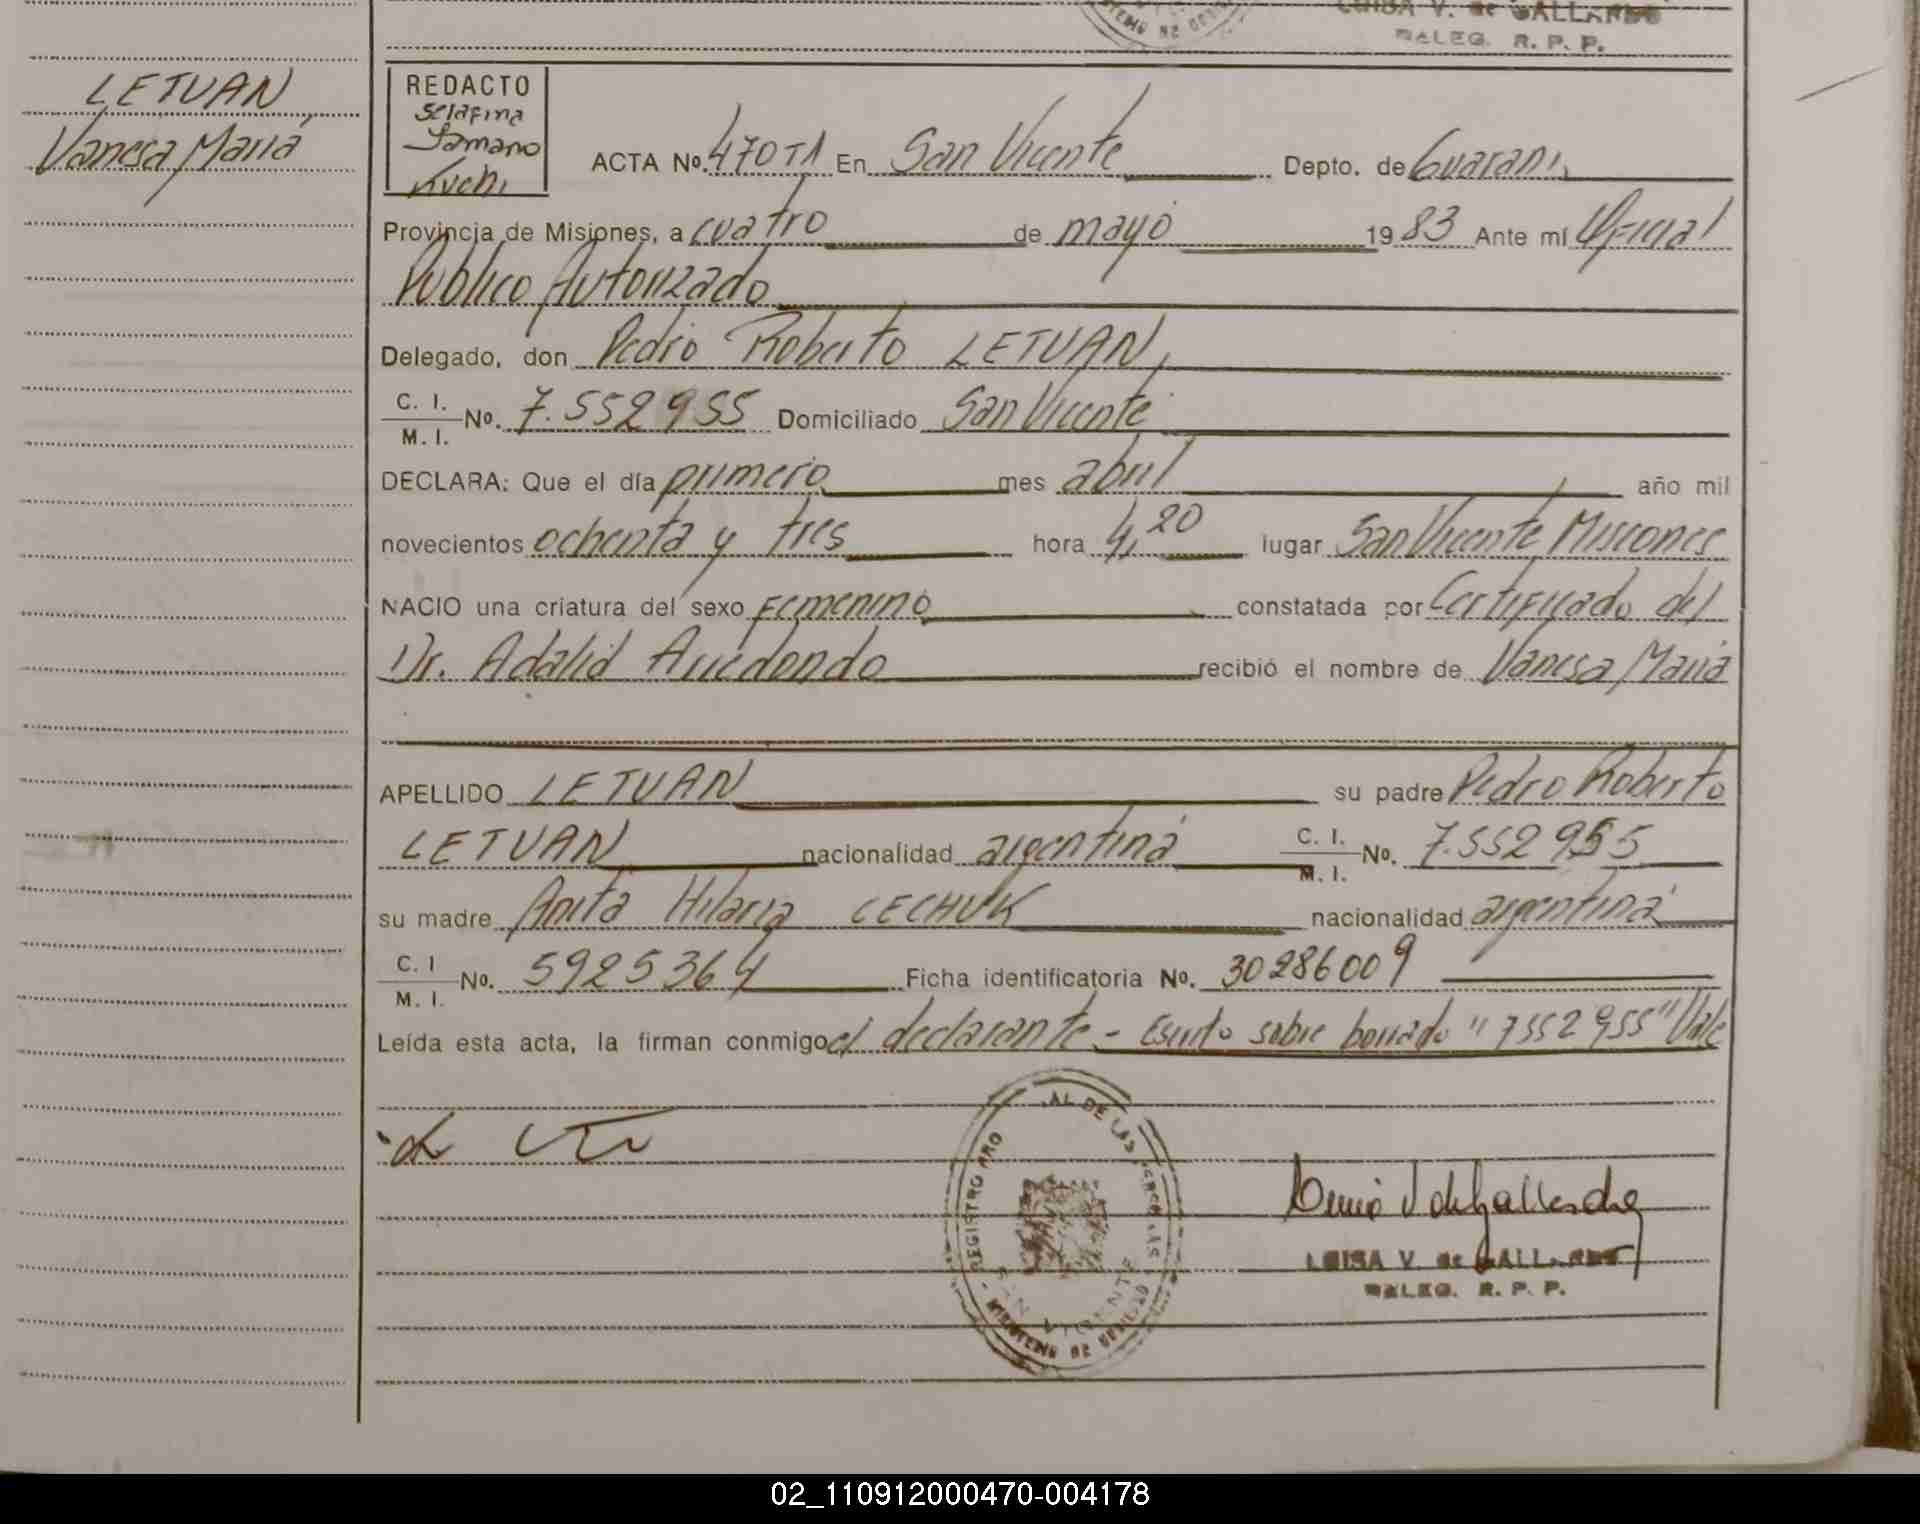 LUISA V. de GALLARDO
DALEG. R. P. P.
LETUAN
Vanesa María
REDACTO
Serafina
Samano
Kuchi
ACTA No. 470 T1 En San Vicente Depto. de Guaraní
Provincia de Misiones, a cuatro de mayo 1983 Ante mí Oficial
Público Autorizado
Delegado, don Pedro Roberto LETUAN,
C. I.
M. I. No. 7.552955 Domiciliado San Vicente
DECLARA: Que el día primero mes abril año mil
novecientos ochenta y tres hora 4,20 lugar San Vicente Misiones
NACIO una criatura del sexo femenino constatada por Certificado del
Dr. Adalid Arredondo recibió el nombre de Vanesa María
APELLIDO LETUAN su padre Pedro Roberto
LETUAN nacionalidad argentina C. I.
M. I. No. 7.552955
su madre Anita Hilaria CECHUK nacionalidad argentina
C. I
M. I. No. 5925364 Ficha identificatoria No. 30286009
Leída esta acta, la firman conmigo el declarante - Escrito sobre borrado "7552955" Vale
REGISTRO DE LAS PERSONAS
SAN VICENTE
MINISTERIO DE GOBIERNO
LUISA V. de GALLARDO
DALEG. R. P. P.
02_110912000470-004178